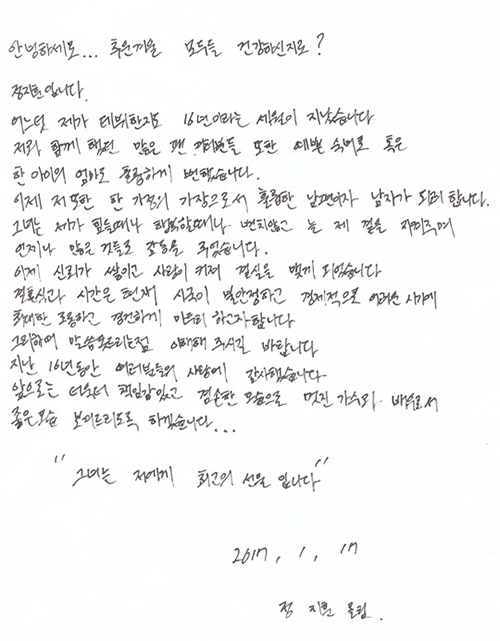 안녕하세요... 추운겨울 모두들 건강하신지요?
정지훈입니다.
어느덧 제가 데뷔한지도 16년이라는 세월이 지났습니다
저와 함께 했던 많은 팬 여러분들 또한 예쁜 숙녀로 혹은
한 아이의 엄마로 훌륭하게 변했습니다.
이제 저 또한 한 가정의 가장으로서 훌륭한 남편이자 남자가 되려 합니다.
그녀는 제가 힘들때나 행복할때나 변치않고 늘 제 곁을 지켜주며
언제나 많은 것들로 감동을 주었습니다.
이제 신뢰가 쌓이고 사랑이 커져 결실을 맺게 되었습니다
결혼식과 시간은 현재 시국이 불안정하고 경제적으로 어려운 시기에
최대한 조용하고 경건하게 마무리 하고자합니다
그리하여 말씀못드리는점 이해해 주시길 바랍니다.
지난 16년동안 여러분들의 사랑에 감사했습니다
앞으로는 더욱더 책임감있고 겸손한 모습으로 멋진 가수와 배우로서
좋은모습 보여드리도록 하겠습니다...
"그녀는 저에게 최고의 선물 입니다"
2017. 1. 17
정 지훈 올림.